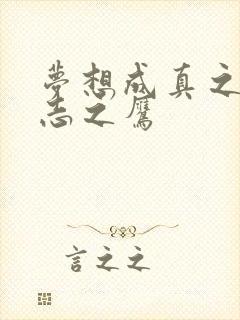 夢想成真之
志之鷹
言之之